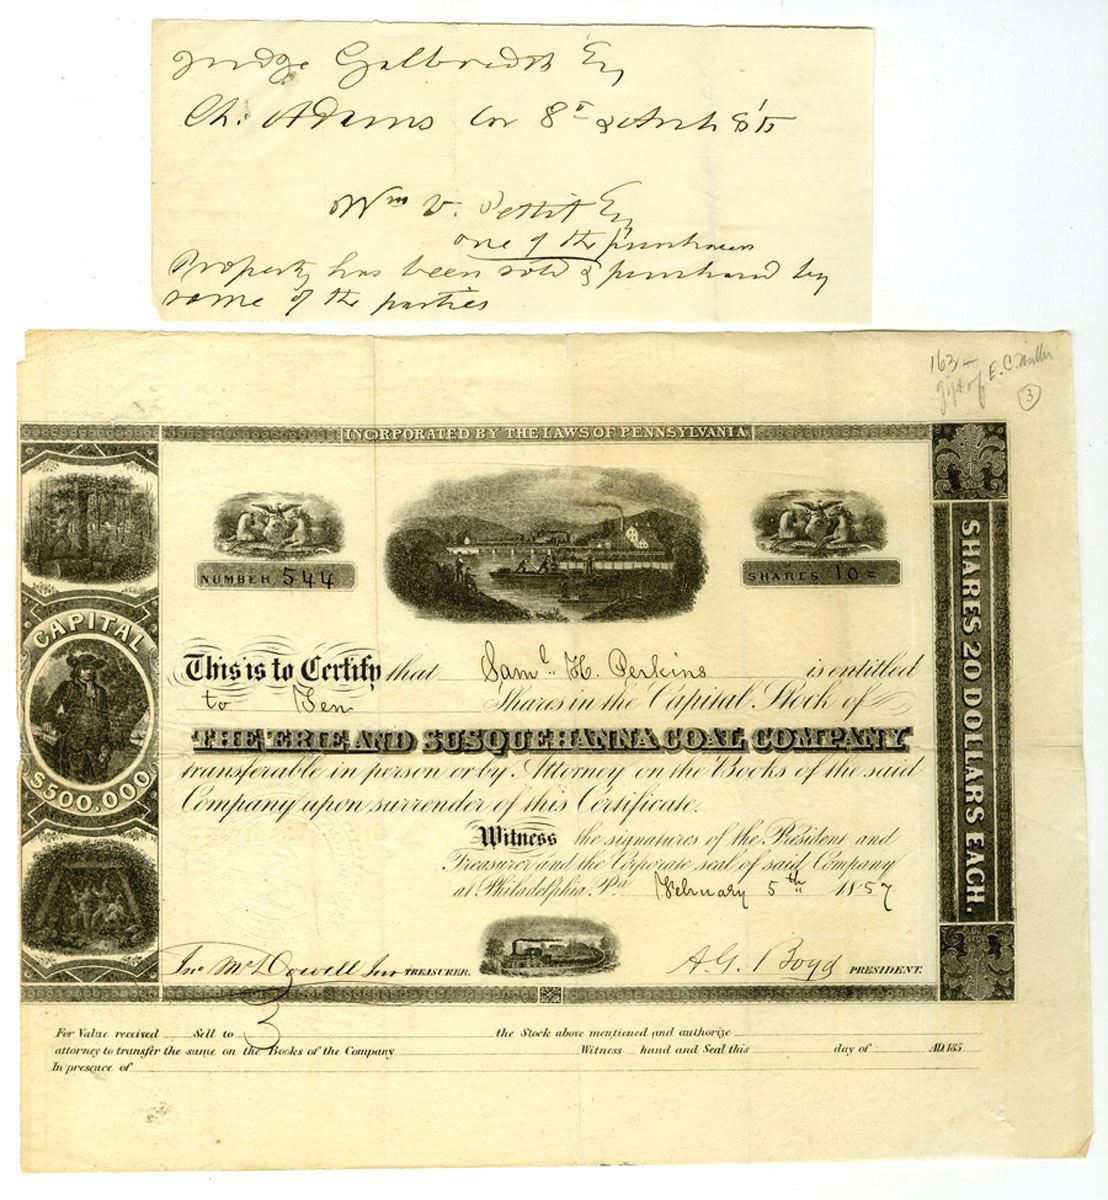 Judge Galbreath Esq
Ch. Adams Cor 8th & Arch Sts
Wm V. Pettit Esq
one of the purchasers
Property has been sold & purchased by
some of the parties
163-
gift of E. C. Miller
3
INCORPORATED BY THE LAWS OF PENNSYLVANIA
NUMBER 544
SHARES 10=
CAPITAL
$500.000
This is to Certify that Saml. H. Perkins is entitled
to Ten Shares in the Capital Stock of
THE ERIE AND SUSQUEHANNA COAL COMPANY
transferable in person or by Attorney on the Books of the said
Company upon surrender of this Certificate.
Witness the signatures of the President and
Treasurer and the Corporate seal of said Company
at Philadelphia Pa February 5th 1857
Jno McDowell Jnr TREASURER.
A.G. Boyd PRESIDENT.
SHARES 20 DOLLARS EACH.
For Value received Sell to the Stock above mentioned and authorize
attorney to transfer the same on the Books of the Company Witness hand and Seal this day of AD. 185
In presence of